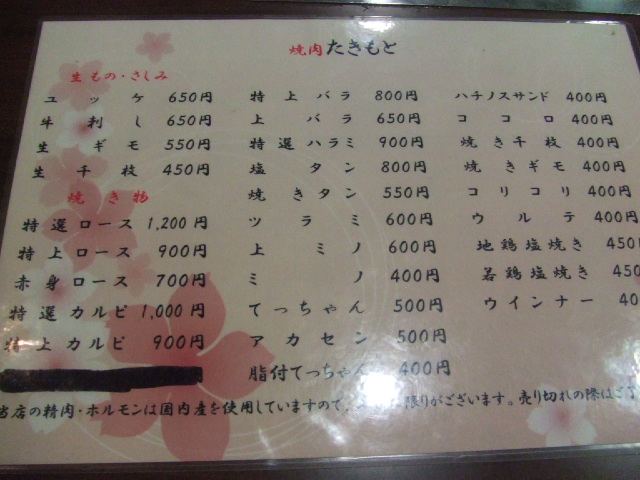 焼肉 たきもと
生もの・さしみ
ユッケ 650円
牛刺し 650円
生ギモ 550円
生千枚 450円
焼き物
特選ロース 1,200円
特上ロース 900円
赤身ロース 700円
特選カルビ 1,000円
特上カルビ 900円
特上バラ 800円
上バラ 650円
特選ハラミ 900円
塩タン 800円
焼きタン 550円
ツラミ 600円
上ミノ 600円
ミノ 400円
てっちゃん 500円
アカセン 500円
脂付てっちゃん 400円
ハチノスサンド 400円
ココロ 400円
焼き千枚 400円
焼きギモ 400円
コリコリ 400円
ウルテ 400円
地鶏塩焼き 450
若鶏塩焼き 450
ウインナー 40
当店の精肉・ホルモンは国内産を使用していますので、限りがございます。売り切れの際はご了